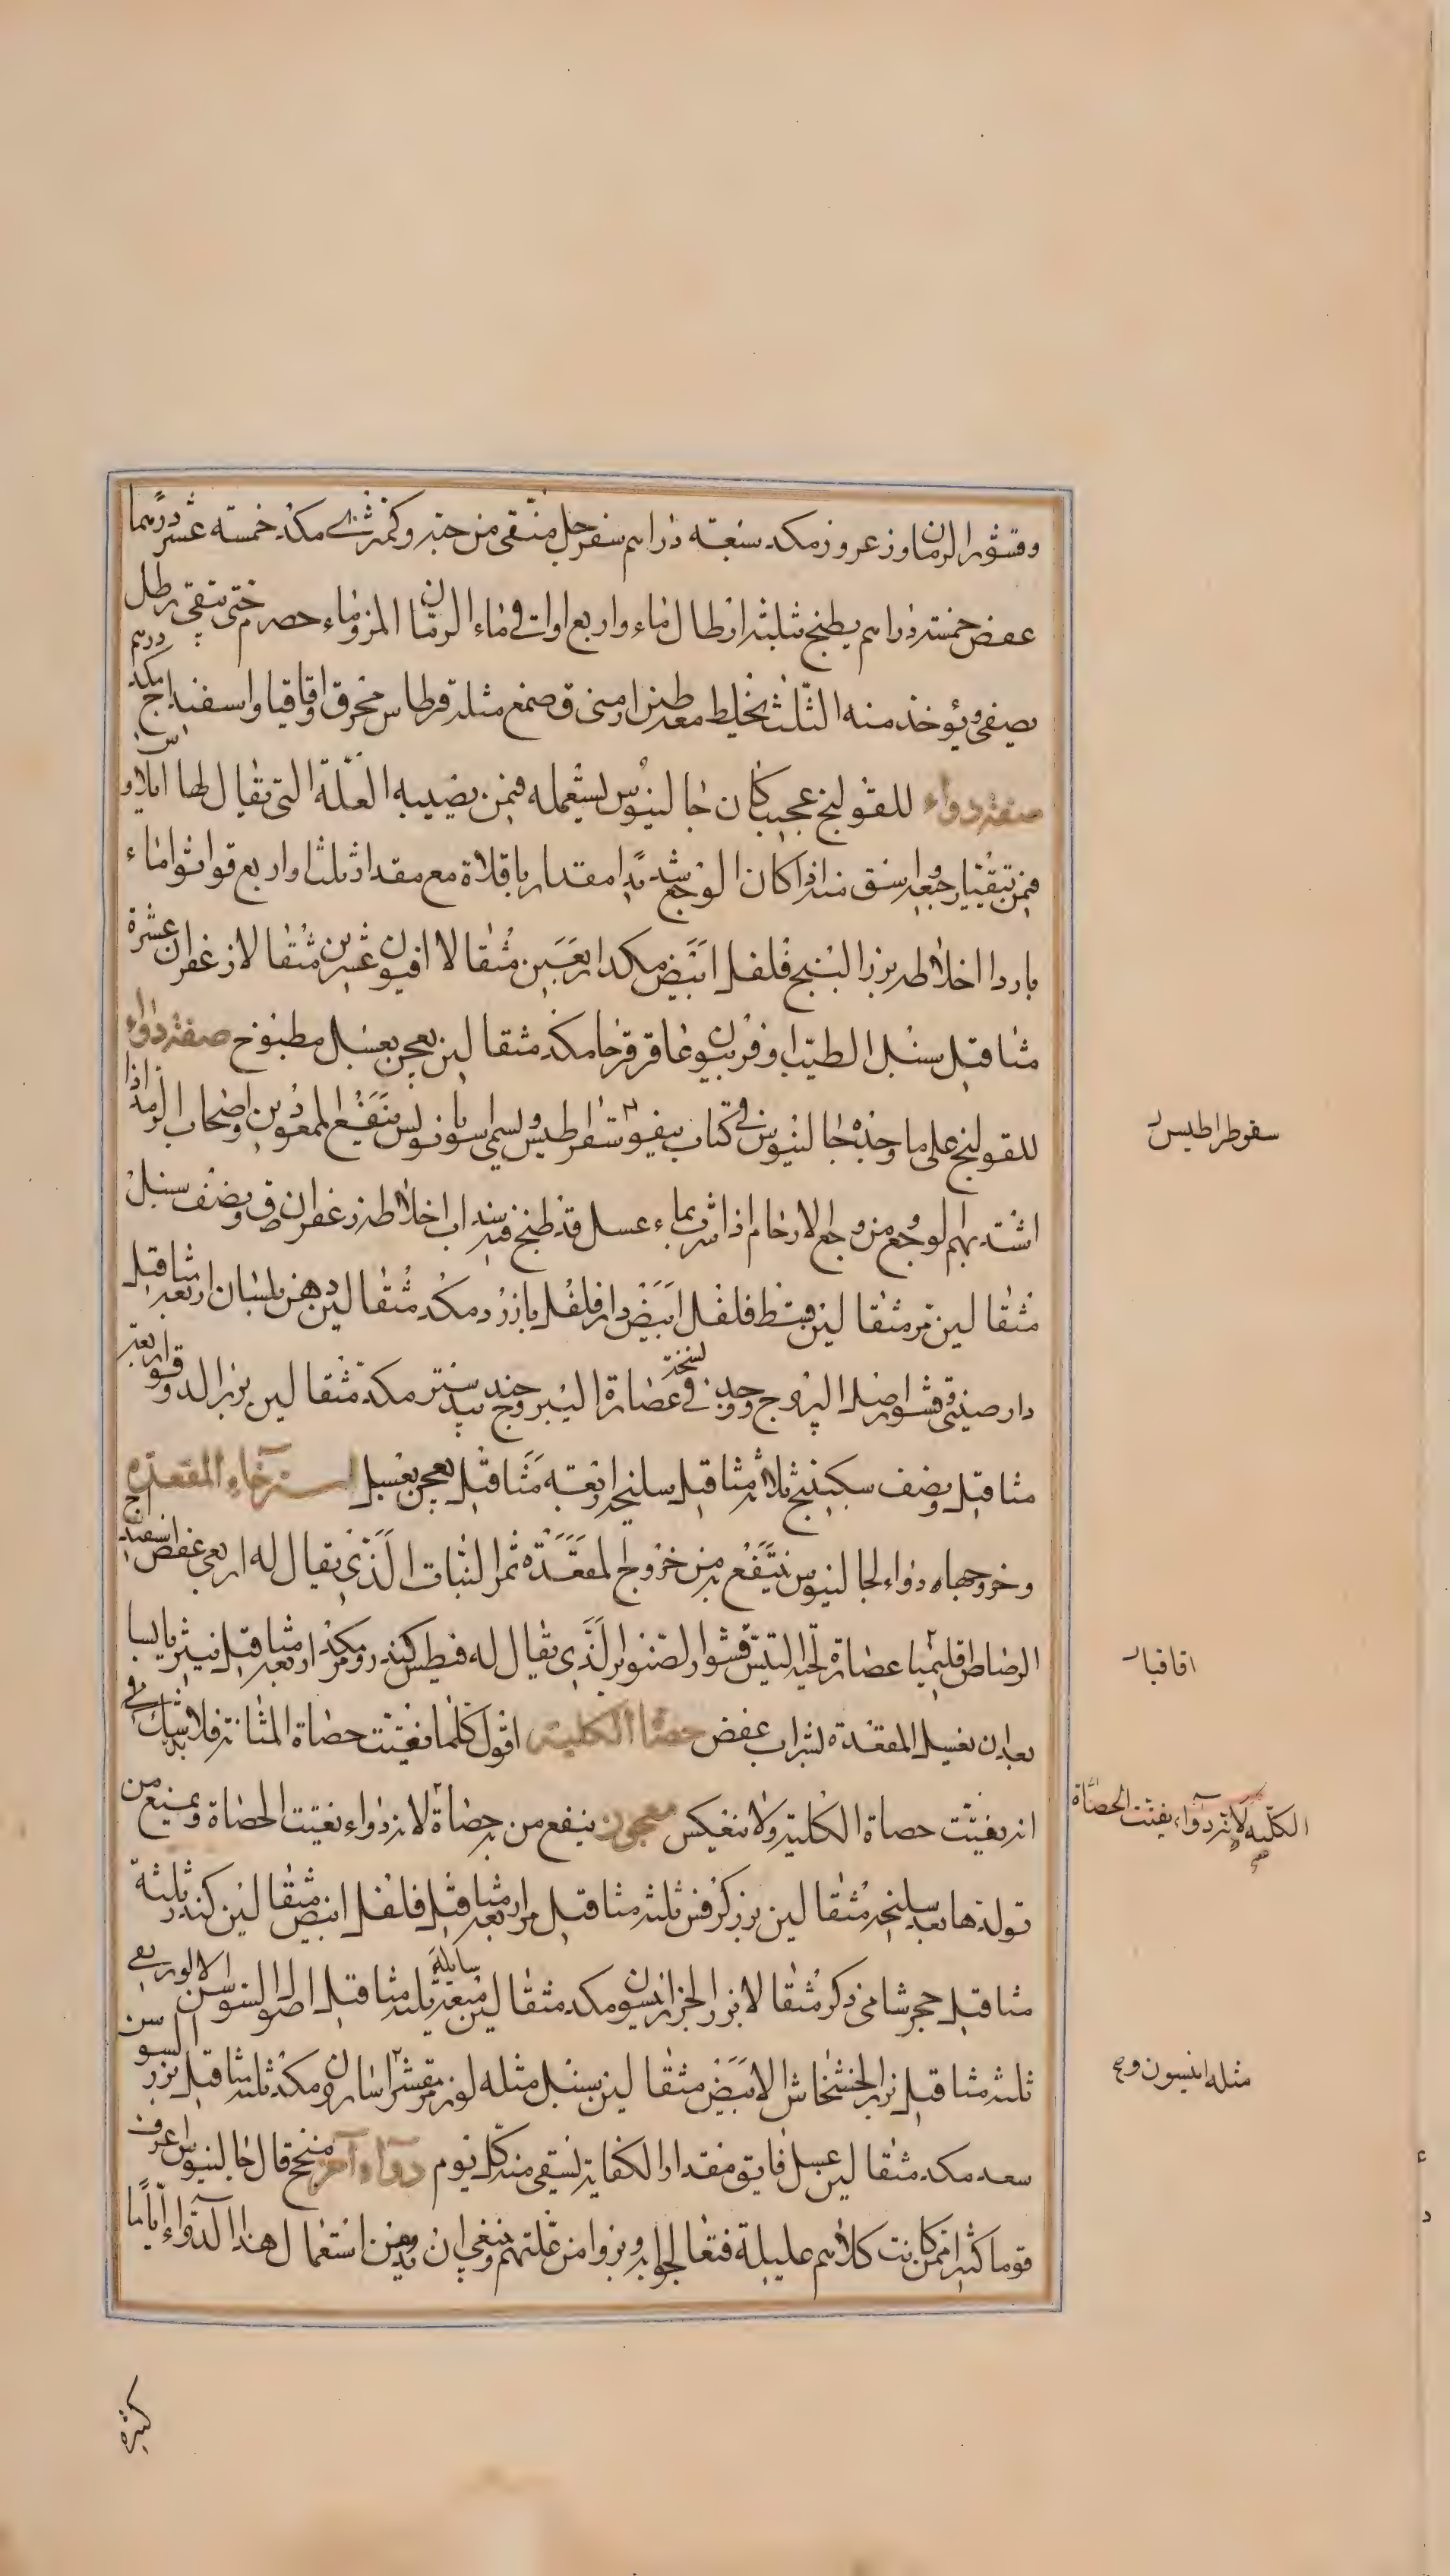 وقشور الرمان وزعرور مكد سبعة دراهم سفرجل منقى من حبه وكمثرى مكد خمسة عشر درهما
عفص خمسة دراهم يطبخ بثلثة ارطال ماء واربع اواق ماء الرمان المز وماء حصرم حتى يبقى رطل
يصفى ويؤخذ منه الثلث يخلط معه طين ارمنى ق صمغ مثله قرطاس محرق اقاقيا واسفيداج مكد درهم
صفة دواء للقولنج عجيب كان جالينوس يستعمله فيمن يصيبه العلة التى يقال لها ايلاوس
فيمن يتقيا رجيعه يسقى منه اذا كان الوجع شديدا مقدار باقلاة مع مقدار ثلث او اربع قوانوا ماء
باردا اخلاطه بزر البنج فلفل ابيض مكد اربعين مثقالا افيون عشرين مثقالا زعفران عشرة
مثاقيل سنبل الطيب وفربيون عاقرقرحا مكد مثقالين يعجن بعسل مطبوخ صفة دواء
للقولنج على ما وجده جالينوس فى كتاب سقراطيس ويسمى ينفع الممعودين واصحاب الرمد اذا
اشتد بهم الوجع من وجع الارحام اذا شرب بماء عسل قد طبخ فيه سداب اخلاطه زعفران ق ونصف سنبل
مثقالين مر مثقالين قسط فلفل ابيض دارفلفل بازرد مكد مثقالين دهن بلسان اربعة مثاقيل
دارصينى ق قشور اصل اليبروج ووجد فى نسخة عصارة اليبروج جندبيدستر مكد مثقالين بزر الدوقو اربعة
مثاقيل ونصف سكبينج ثلاثة مثاقيل سليخه اربعة مثاقيل يعجن بعسل استرخاء المقعدة
وخروجها دواء لجالينوس ينتفع به من خروج المقعدة ثمر النبات الذى يقال له اربعى عفص اسفيداج
الرصاص اقليميا عصارة لحية التيس قشور الصنوبر الذى يقال له فيطس كندر ومر مكد اربعة مثاقيل ينثر يابسا
بعد ان يغسل المقعدة بشراب عفص حصاة الكلية اقول كلما يفتت حصاة المثانة فلا شك فى
انه يفتت حصاة الكلية ولا ينعكس معجون ينفع من به حصاة لانه دواء يفتت الحصاة ويمنع من
تولدها بعد سليخه مثقالين بزر كرفس ثلثة مثاقيل مر اربعة مثاقيل فلفل ابيض مثقالين كندر ثلثة
مثاقيل حجر شامى ذكر مثقالا بزر الجزر انيسون مكد مثقالين ميعة سايلة ثلثة مثاقيل اصول السوسن الالوريقى
ثلثة مثاقيل بزر الخشخاش الابيض مثقالين سنبل مثله لوز مر مقشر اسارون مكد ثلثة مثاقيل بزر السوسن
سعد مكد مثقالين عسل فايق مقدار الكفاية يسقى منه كل يوم دواء آخر منجح قال جالينوس اعرف
قوما كثيرا ممن كانت كلاهم عليلة فتعالجوا به وبروا من علتهم وينبغى ان يدمن استعمال هذا الدواء اياما
كثيرة
سقوطراطيس
اقاقيا
الكلية لانه دواء يفتت الحصاة
مثله انيسون وج